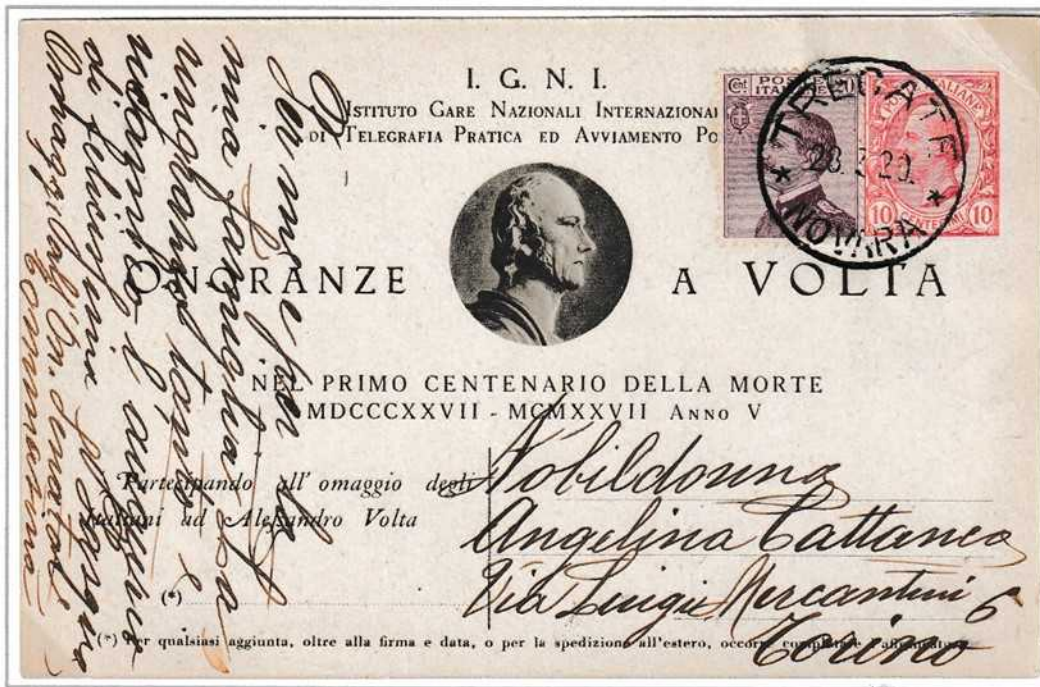 I. G. N. I.
ISTITUTO GARE NAZIONALI INTERNAZIONA
DI TELEGRAFIA PRATICA ED AVVIAMENTO PO
POSTE
ITALIANE
TRECATE
NOVARA
10 CENTESIMI 10
ONORANZE A VOLTA
NEL PRIMO CENTENARIO DELLA MORTE
MDCCCXXVII - MCMXXVII ANNO V
Partecipando all'omaggio degli
Italiani ad Alessandro Volta
(*)
(*) Per qualsiasi aggiunta, oltre alla firma e data, o per la spedizione all'estero, occorre completare l'affrancatura.
Nobildonna
Angelina Cattaneo
Via Luigi Mercantini 6
Torino
mia famiglia
ringrazio tanto e
ricambio l'augurio